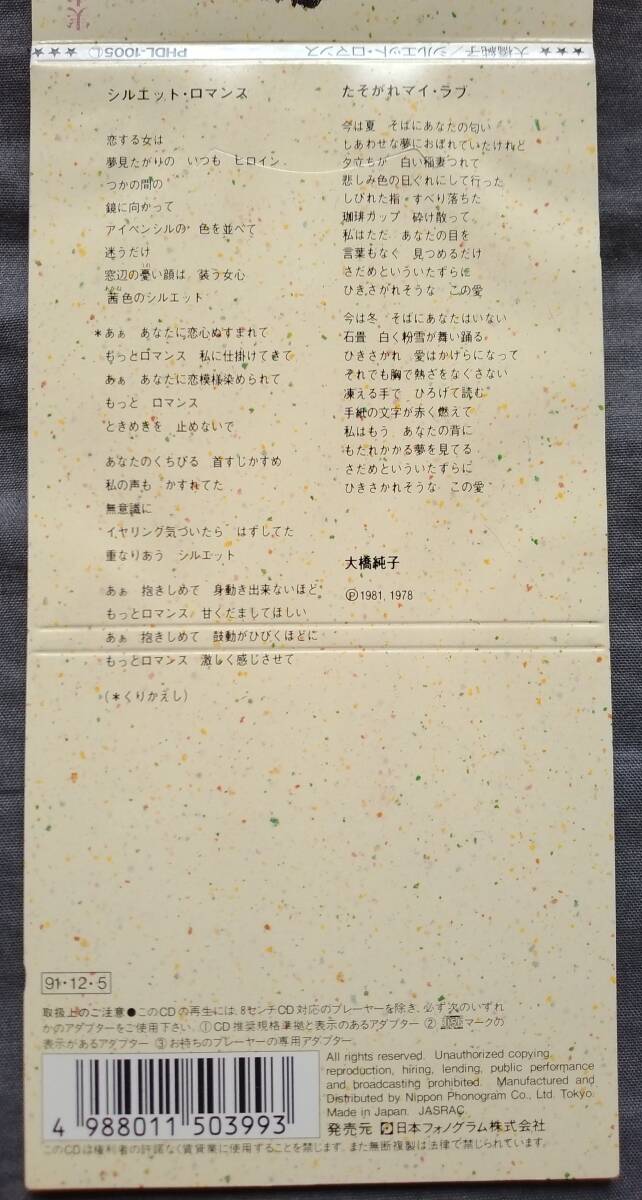 大橋純子/シルエット・ロマンス
PHDL-1005Ⓛ
シルエット・ロマンス
恋する女は
夢見たがりの いつも ヒロイン
つかの間の
鏡に向かって
アイペンシルの 色を並べて
迷うだけ
窓辺の憂い顔は 装う女心
茜色のシルエット
*あぁ あなたに恋心ぬすまれて
もっとロマンス 私に仕掛けてきて
あぁ あなたに恋模様染められて
もっと ロマンス
ときめきを 止めないで
あなたのくちびる 首すじかすめ
私の声も かすれてた
無意識に
イヤリング気づいたら はずしてた
重なりあう シルエット
あぁ 抱きしめて 身動き出来ないほど
もっとロマンス 甘くだましてほしい
あぁ 抱きしめて 鼓動がひびくほどに
もっとロマンス 激しく感じさせて
(*くりかえし)
たそがれマイ・ラブ
今は夏 そばにあなたの匂い
しあわせな夢におぼれていたけれど
夕立ちが 白い稲妻つれて
悲しみ色の日ぐれにして行った
しびれた指・すべり落ちた
珈琲カップ 砕け散って
私はただ あなたの目を
言葉もなく 見つめるだけ
さだめといういたずらに
ひきさかれそうな この愛
今は冬 そばにあなたはいない
石畳 白く粉雪が舞い踊る
ひきさかれ 愛はかけらになって
それでも胸で熱さをなくさない
凍える手で ひろげて読む
手紙の文字が赤く燃えて
私はもう あなたの背に
もたれかかる夢を見てる
さだめといういたずらに
ひきさかれそうな この愛
大橋純子
Ⓟ1981, 1978
91・12・5
取扱上のご注意●このCDの再生には、8センチCD対応のプレーヤーを除き、必ず次のいずれ
かのアダプターをご使用下さい。①CD推奨規格準拠と表示のあるアダプター ②マークの
表示があるアダプター ③お持ちのプレーヤーの専用アダプター
4 988011 503993
All rights reserved. Unauthorized copying,
reproduction, hiring, lending, public performance
and broadcasting prohibited. Manufactured and
Distributed by Nippon Phonogram Co., Ltd. Tokyo.
Made in Japan. JASRAC
発売元 日本フォノグラム株式会社
このCDは権利者の許諾なく賃貸業に使用することを禁じます。また無断複製は法律で禁じられています。